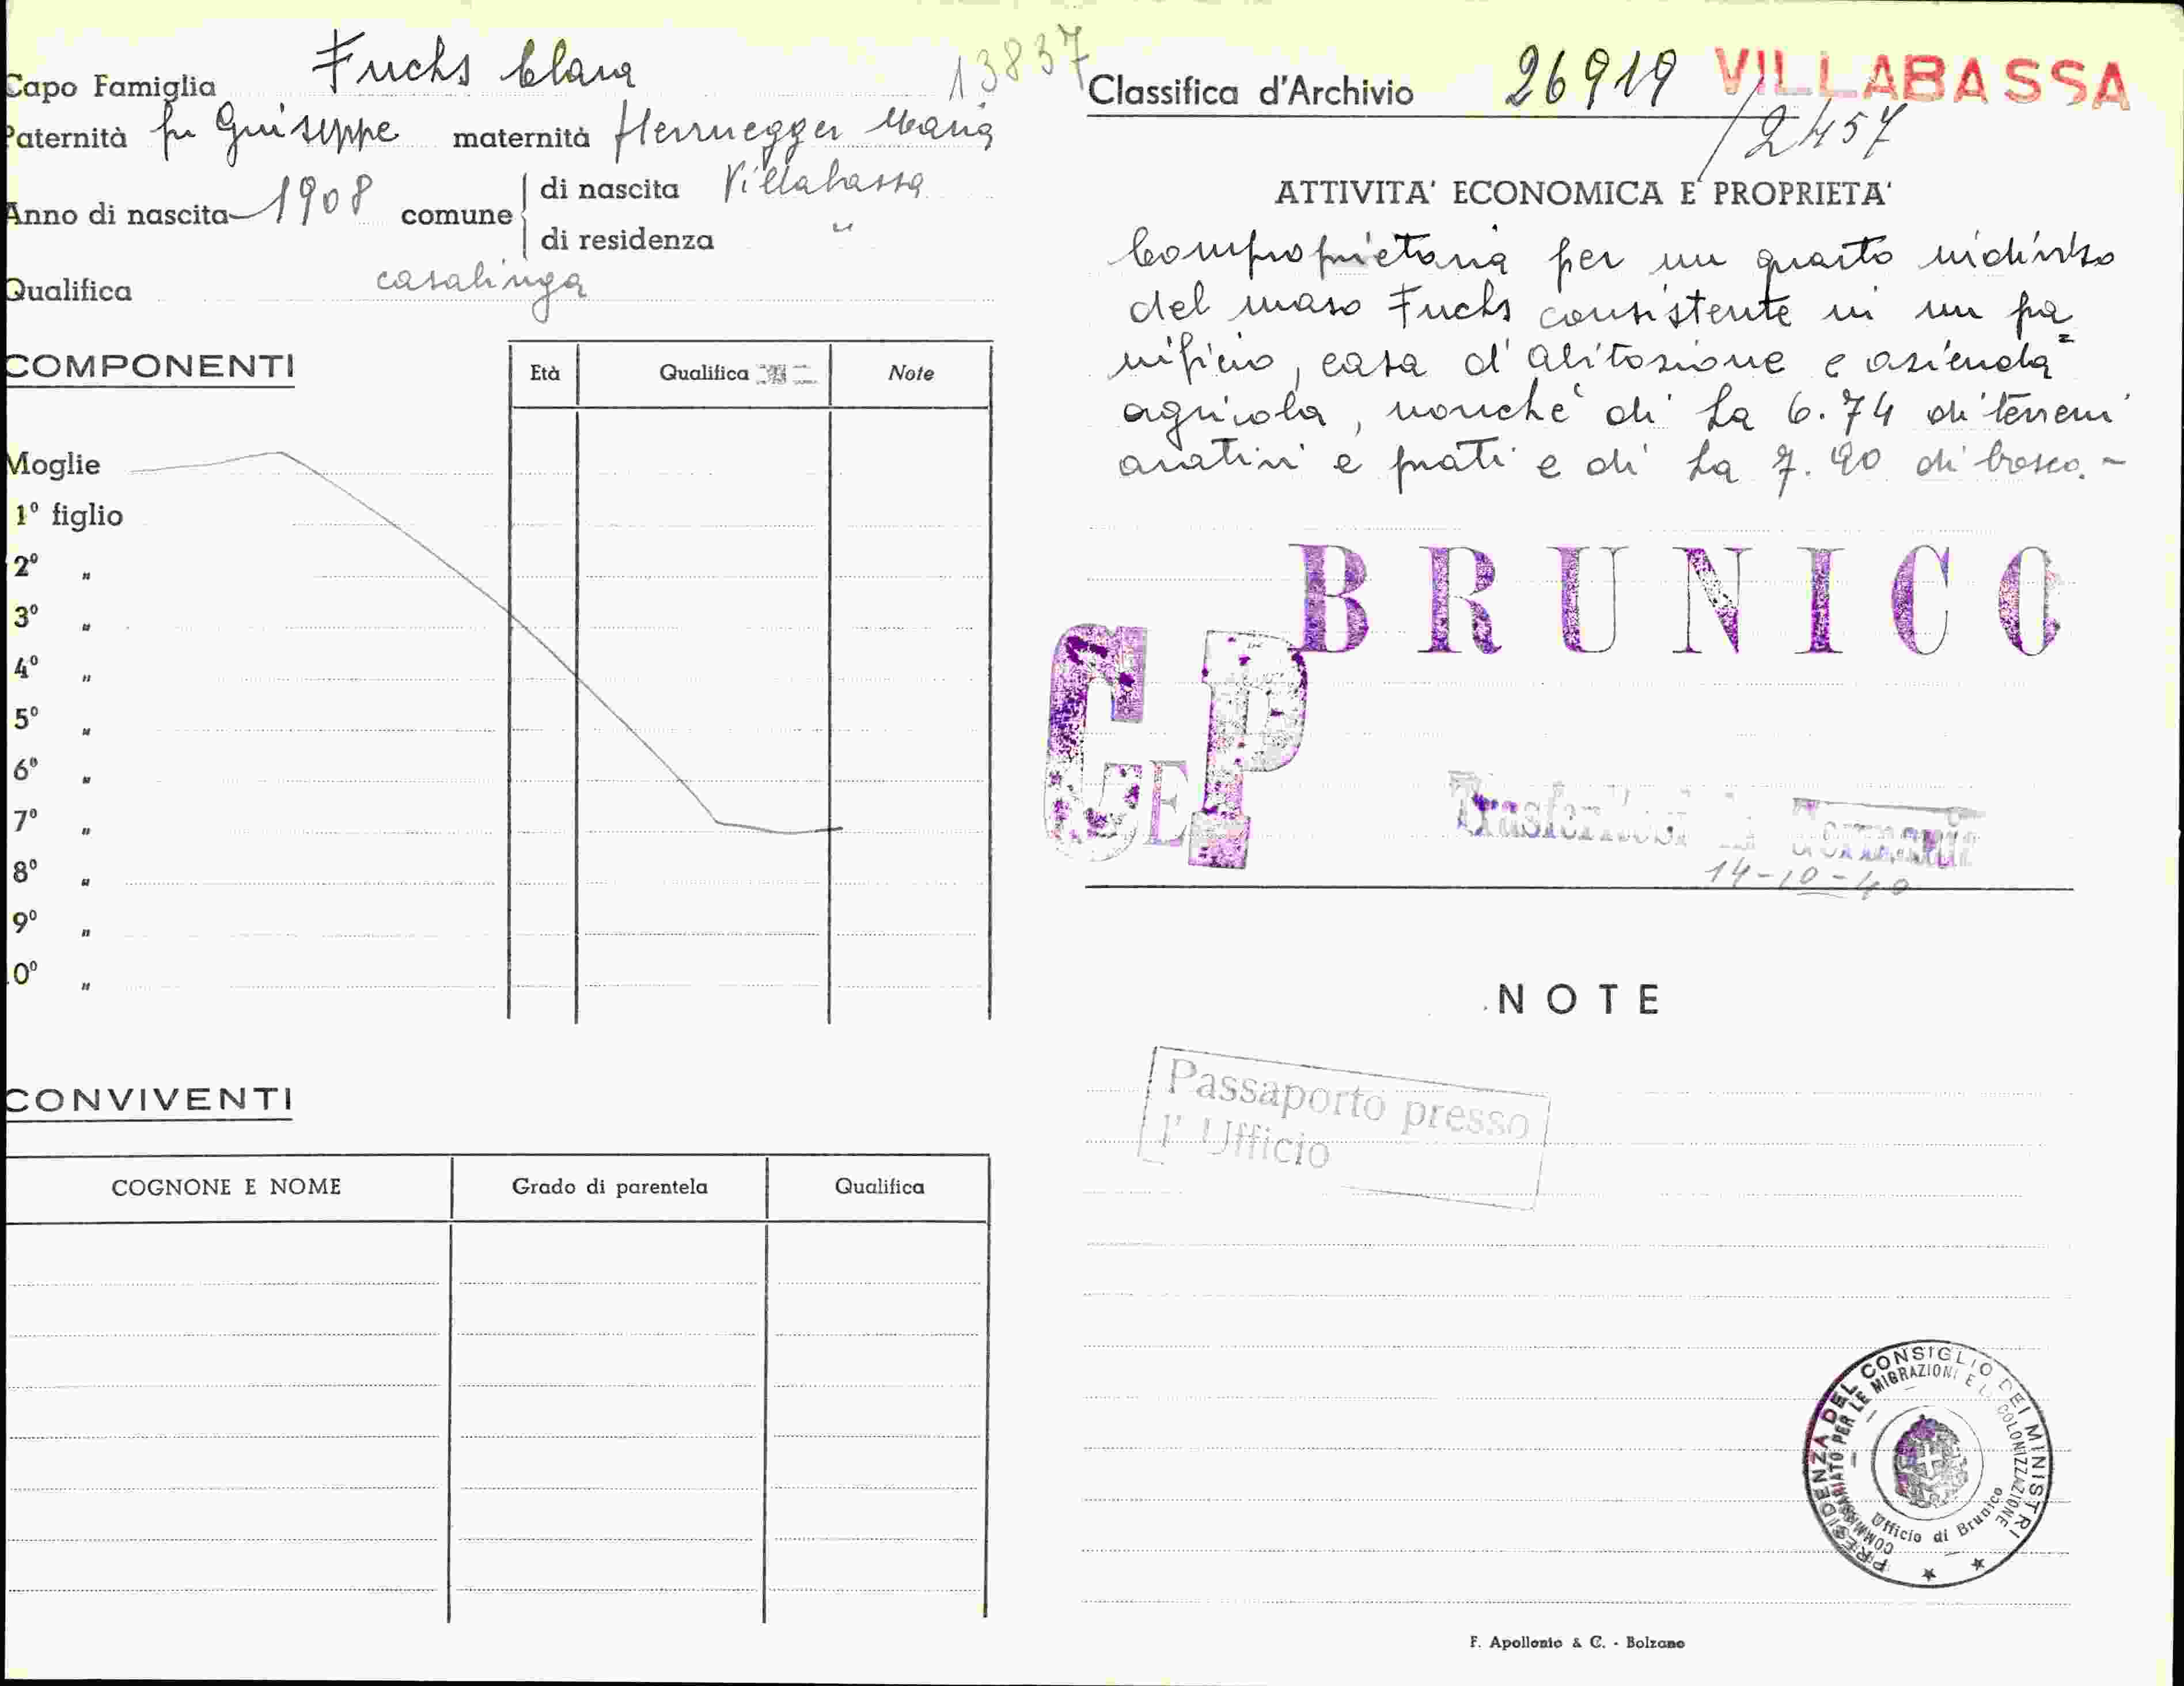 Capo Famiglia Fuchs Clara 13837
Paternità fu Giuseppe maternità Herrnegger Maria
Anno di nascita 1908 comune di nascita Villabassa
di residenza "
Qualifica casalinga
COMPONENTI
Età Qualifica Note
Moglie
1º figlio
2º "
3º "
4º "
5º "
6º "
7º "
8º "
9º "
10º "
CONVIVENTI
COGNONE E NOME Grado di parentela Qualifica
Classifica d'Archivio 26919 VILLABASSA
/2457
ATTIVITA' ECONOMICA E PROPRIETA'
Comproprietaria per un quarto indiviso
del maso Fuchs consistente in un pa=
nificio, casa d'abitazione e azienda
agricola, nonchè di ha 6.74 di terreni
arativi e prati e di ha 7.90 di bosco.-
BRUNICO
CEP
Trasferitosi in Germania
14-10-40
NOTE
Passaporto presso
l' Ufficio
PRESIDENZA DEL CONSIGLIO DEI MINISTRI
COMMISSARIATO PER LE MIGRAZIONI E LA COLONIZZAZIONE
Ufficio di Brunico
F. Apollonio & C. - Bolzano